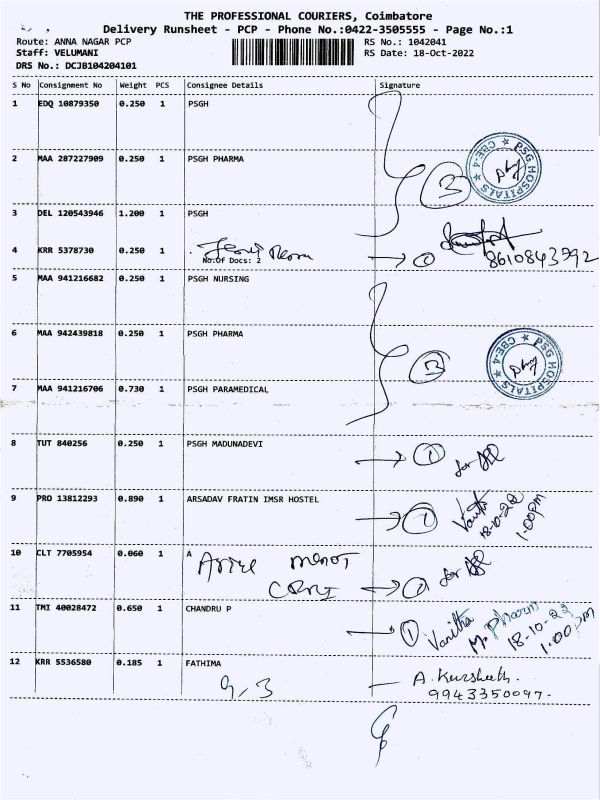 THE PROFESSIONAL COURIERS, Coimbatore
Delivery Runsheet - PCP - Phone No.:0422-3505555 - Page No.:1
Route: ANNA NAGAR PCP RS No.: 1042041
Staff: VELUMANI RS Date: 18-Oct-2022
DRS No.: DCJB104204101
S No Consignment No Weight PCS Consignee Details Signature
1 EDQ 10879350 0.250 1 PSGH
2 MAA 287227909 0.250 1 PSGH PHARMA
3 PSG HOSPITALS CBE-4
3 DEL 120543946 1.200 1 PSGH
4 KRR 5378730 0.250 1 1 8610843592
No.Of Docs: 2
5 MAA 941216682 0.250 1 PSGH NURSING
6 MAA 942439818 0.250 1 PSGH PHARMA
3 PSG HOSPITALS CBE-4
7 MAA 941216706 0.730 1 PSGH PARAMEDICAL
8 TUT 840256 0.250 1 PSGH MADUNADEVI 1 for
9 PRO 13812293 0.890 1 ARSADAV FRATIN IMSR HOSTEL 1 18-10-22 1.00pm
10 CLT 7705954 0.060 1 A
1 for
11 TMI 40028472 0.650 1 CHANDRU P 1 Vanitha
M. Pharm 18-10-22 1.00pm
12 KRR 5536580 0.185 1 FATHIMA
9943350097-